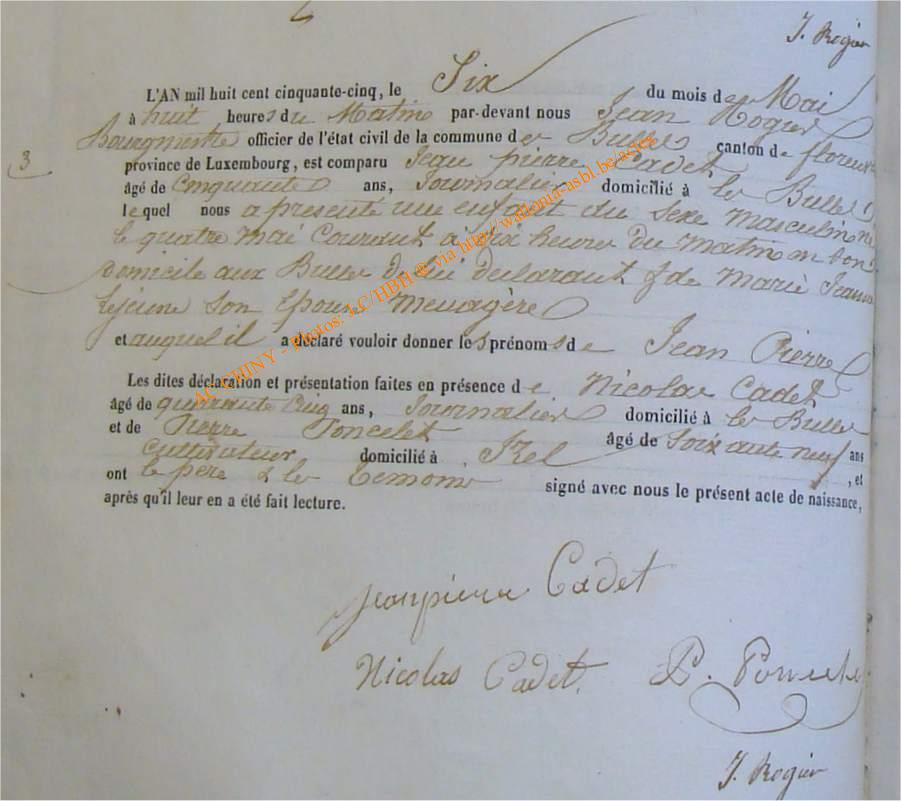 J. Rogier
L'AN mil huit cent cinquante-cinq, le Six du mois de Mai
à huit heures du Matin par-devant nous Jean Rogier
Bourgmestre officier de l'état civil de la commune de Bulles canton de florenv
3
province de Luxembourg, est comparu Jean pierre Cadet
âgé de Cinquante ans, Journalier domicilié à les Bulles
lequel nous a présenté un enfant du Sexe masculin né
le quatre mai Courant à dix heures du matin en Son
domicile aux Bulles de lui déclarant & de Marie Jeanne
Lejeune Son Epouse Menagère
et auquel il a déclaré vouloir donner les prénoms de Jean Pierre
Les dites déclaration et présentation faites en présence de Nicolas Cadet
âgé de quarante Cinq ans, Journalier domicilié à les Bulles
et de Pierre Poncelet âgé de Soixante neuf ans
Cultivateur domicilié à Izel, et
ont le père & les temoins signé avec nous le présent acte de naissance,
après qu'il leur en a été fait lecture.
Jeanpierre Cadet
Nicolas Cadet. P. Poncelet
J. Rogier
AC CHINY - Photos: LC/HBH @ via http://wallonia-asbl.be/actes